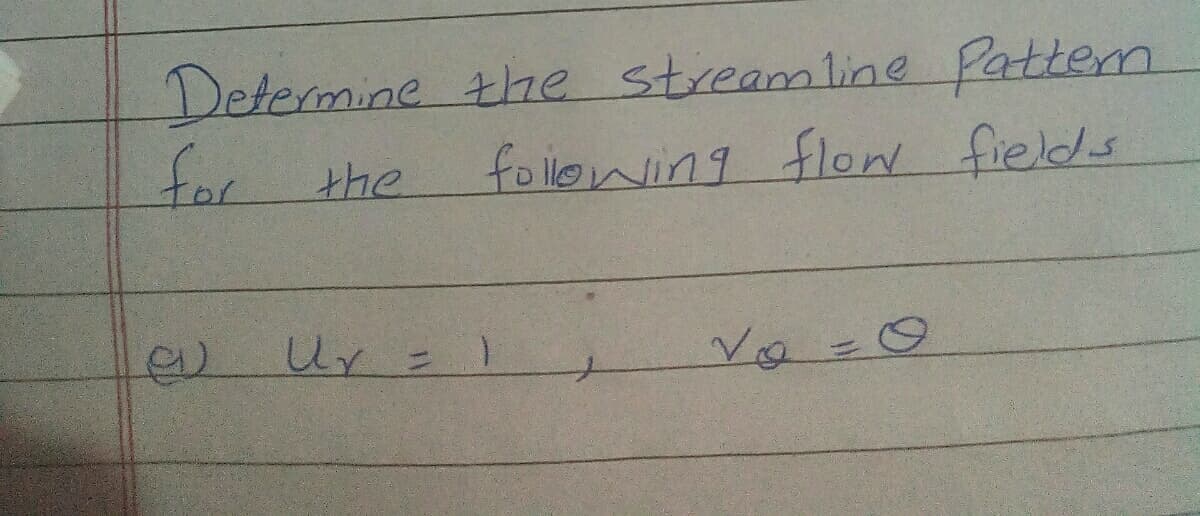 Determine the streamline Pattern
for the following flow fields
a) Ur = 1 , Vθ = θ